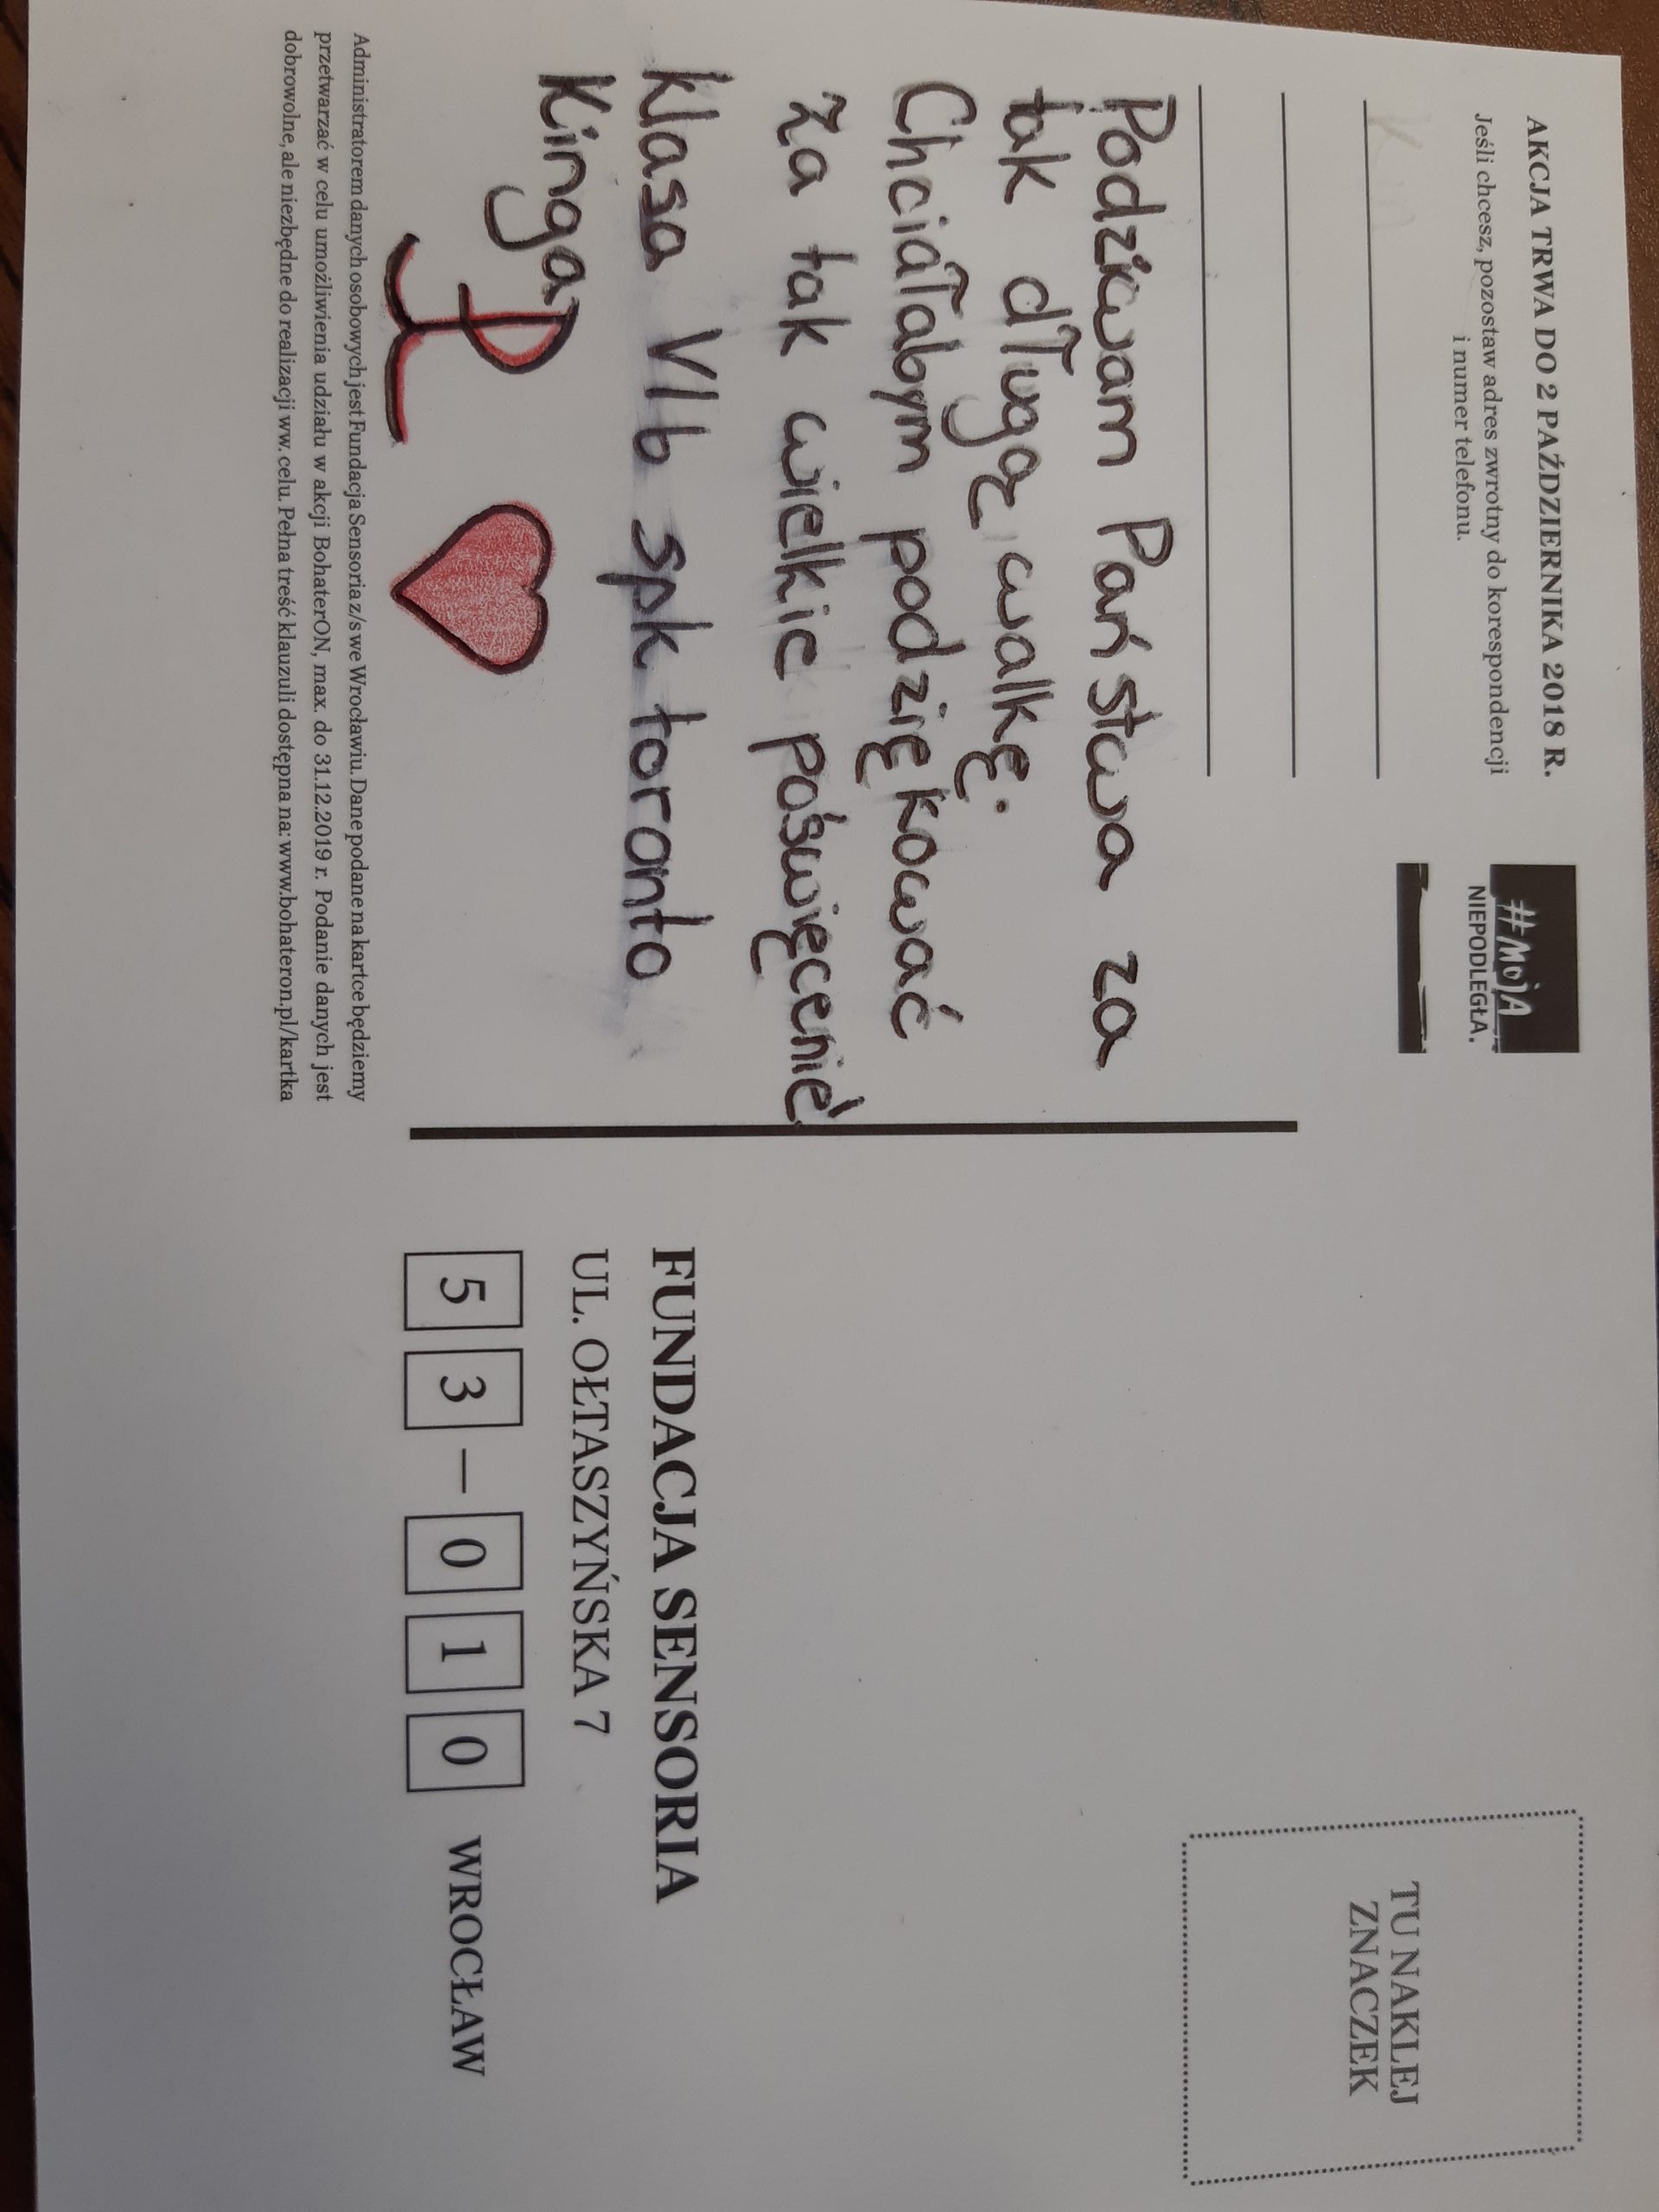 AKCJA TRWA DO 2 PAŹDZIERNIKA 2018 R.
Jeśli chcesz, pozostaw adres zwrotny do korespondencji
i numer telefonu.
#MOJA
NIEPODLEGŁA.
Podziwam Państwa za
tak długą walkę.
Chciałabym podziękować
za tak wielkie poświęcenie!
klasa VIb spk toronto
Kinga
Administratorem danych osobowych jest Fundacja Sensoria z/s we Wrocławiu. Dane podane na kartce będziemy
przetwarzać w celu umożliwienia udziału w akcji BohaterON, max. do 31.12.2019 r. Podanie danych jest
dobrowolne, ale niezbędne do realizacji ww. celu. Pełna treść klauzuli dostępna na: www.bohateron.pl/kartka
TU NAKLEJ
ZNACZEK
FUNDACJA SENSORIA
UL. OŁTASZYŃSKA 7
53-010 WROCŁAW